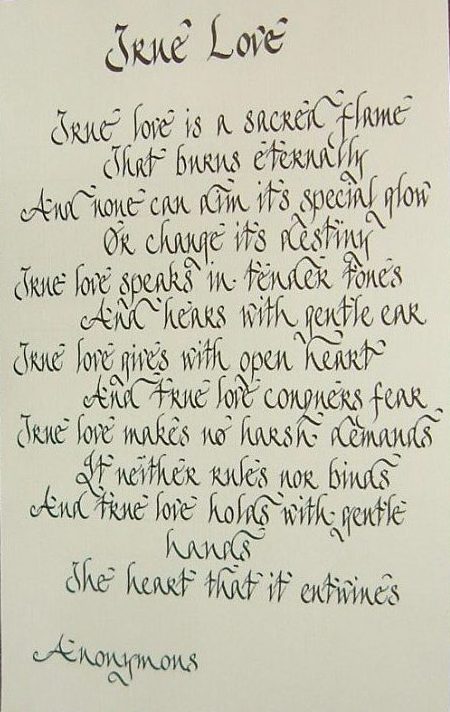 True Love
True love is a sacred flame
That burns eternally
And none can dim it's special glow
Or change it's destiny
True love speaks in tender tones
And hears with gentle ear
True love gives with open heart
And true love conquers fear
True love makes no harsh demands
It neither rules nor binds
And true love holds with gentle
hands
The heart that it entwines
Anonymous